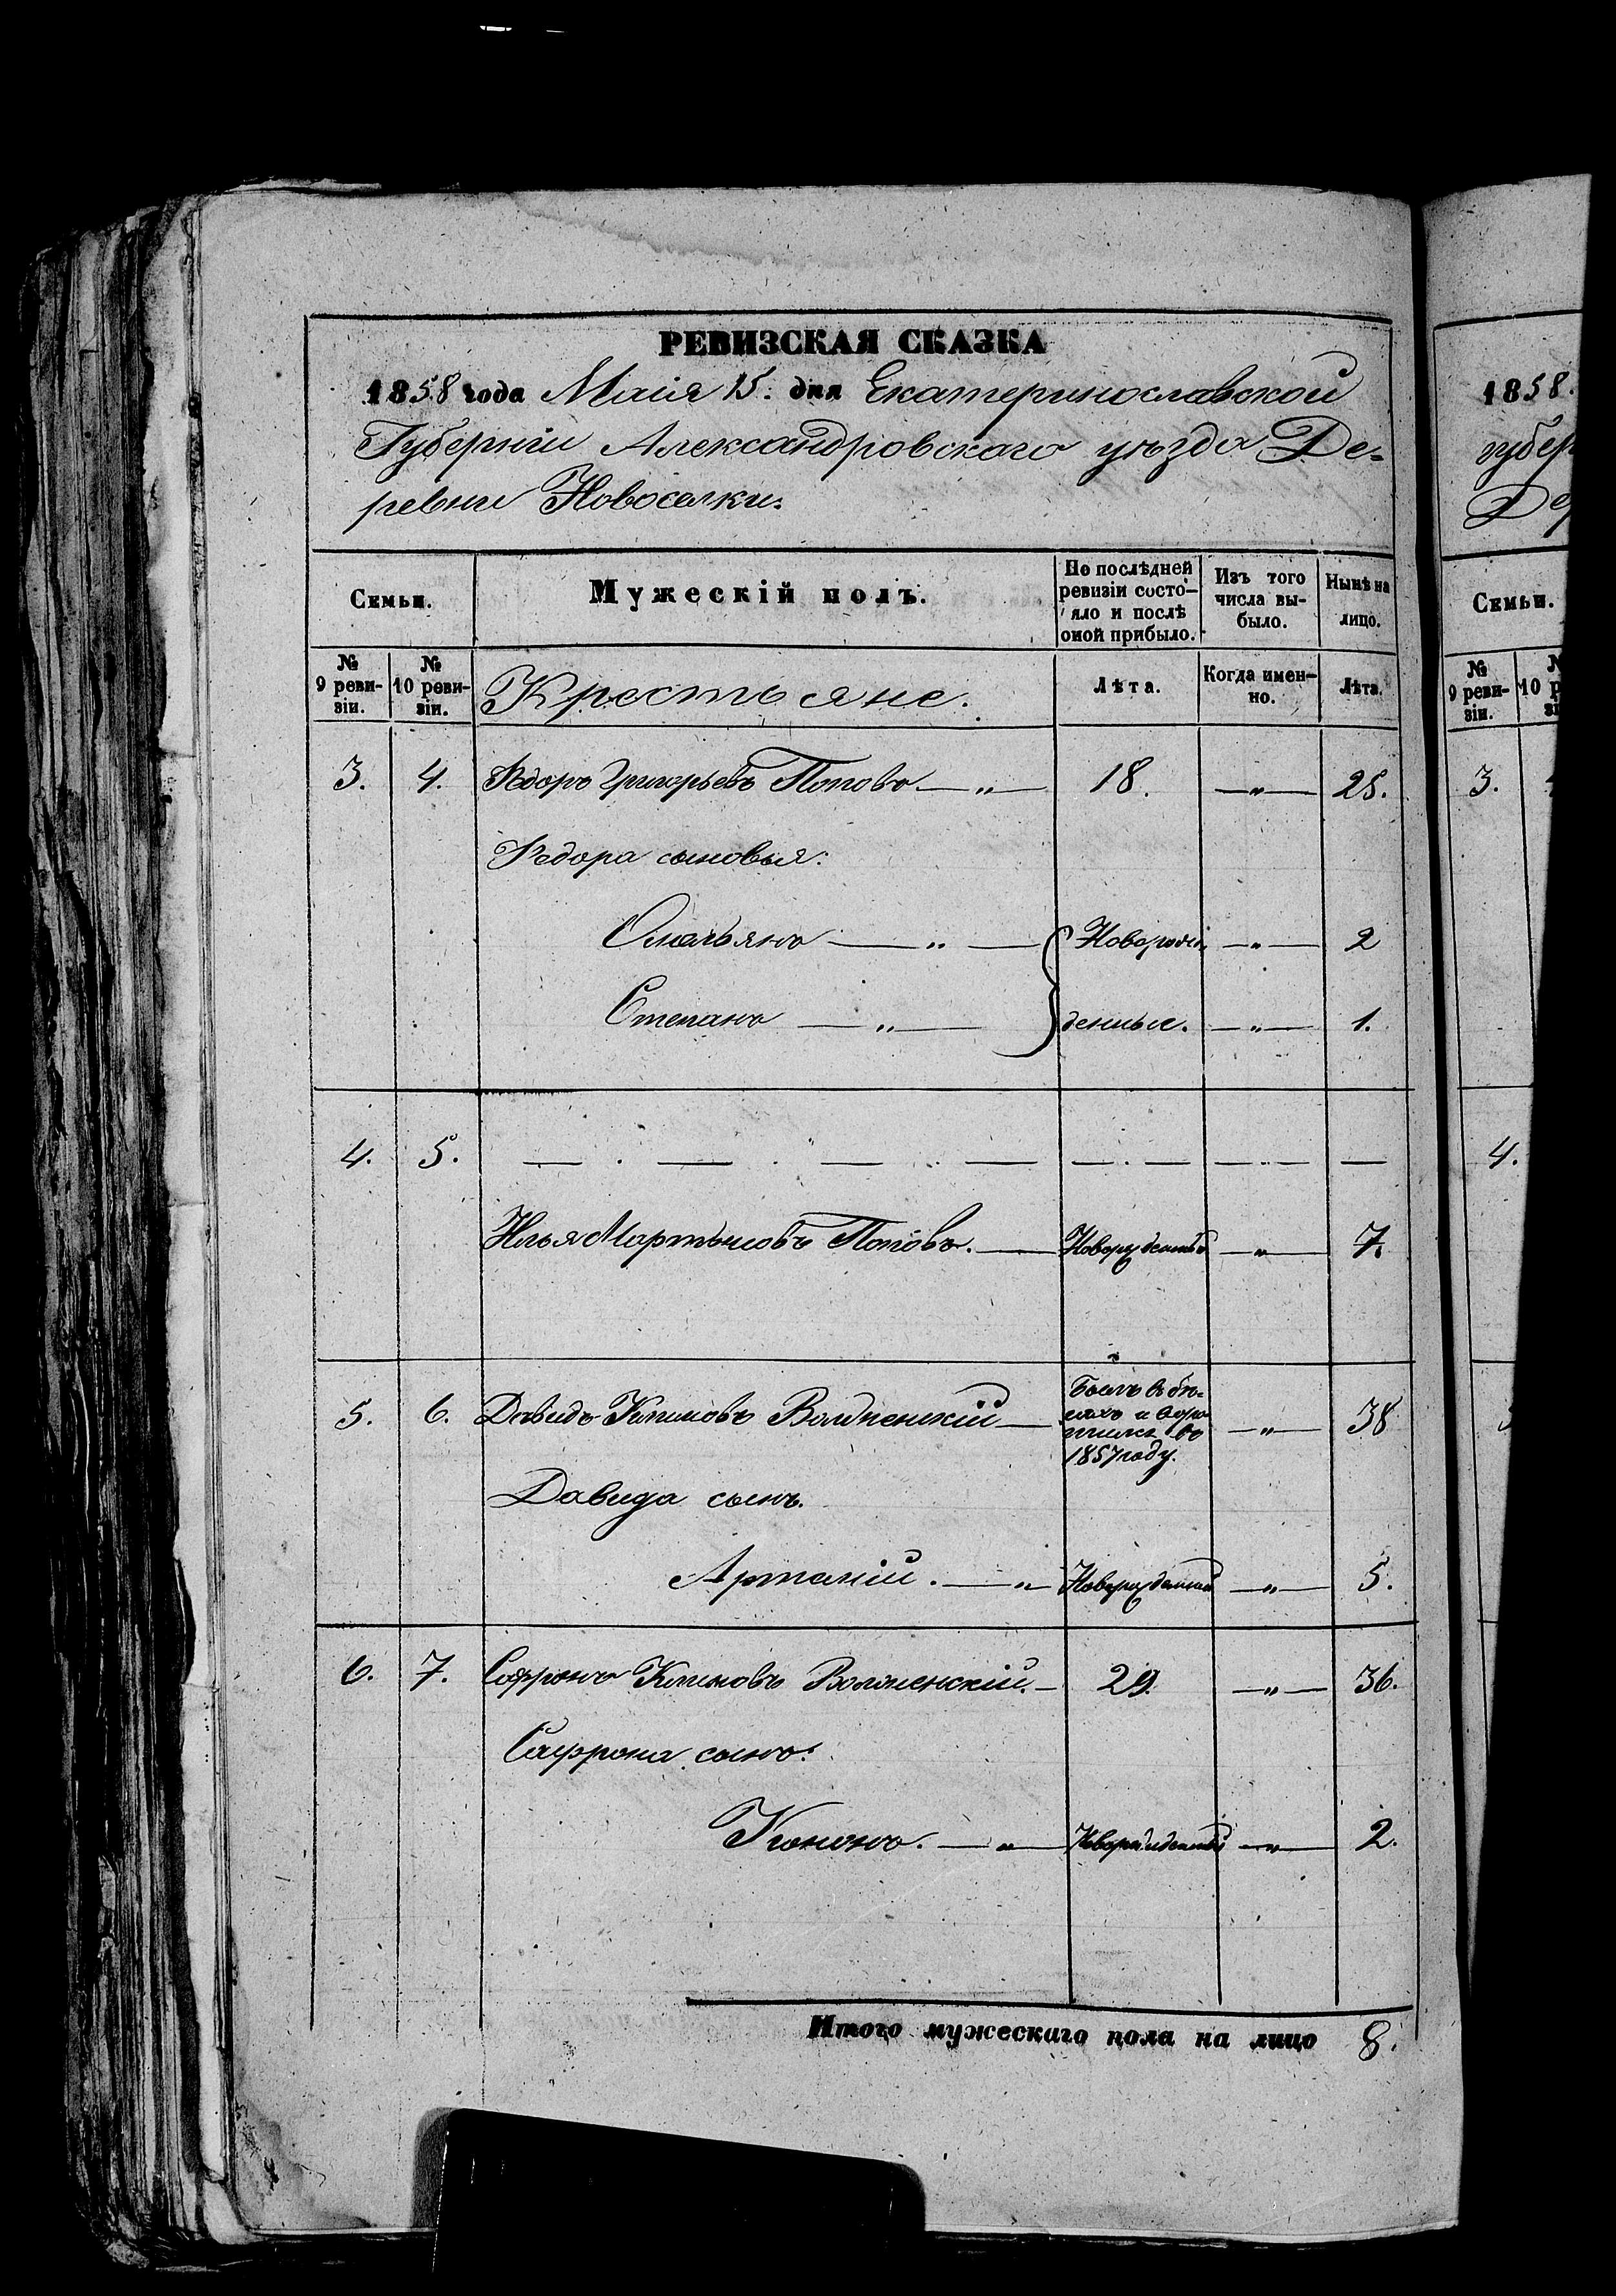 РЕВИЗСКАЯ СКАЗКА
1858 года Маія 15. дня Екатеринославской
Губерніи Александровскаго уѣзда Де-
ревни Новоселки.
Семьи.
Мужескій полъ.
По послѣдней
ревизіи состо-
яло и послѣ
оной прибыло.
Изъ того
числа вы-
было.
Нынѣ на
лицо.
№
9 реви-
зіи.
№
10 реви-
зіи.
Крестьяне.
Лѣта.
Когда имен-
но.
Лѣта.
3. 4. Ѳедоръ Григорьевъ Поповъ — „ — 18. — „ — 25.
Ѳедора сыновья:
Омельянъ — „ — Новорож — „ — 2
Степанъ — „ — денные. — „ — 1.
4. 5. — . — . — . — — . — — . — —
Илья Мартыновъ Поповъ. — Новорожденный — „ — 7.
5. 6. Давидъ Климовъ — Былъ въ бѣ-
гахъ и воро-
тился въ
1857 году. — „ — 38
Давида сынъ.
Артемій. — „ Новорожденный — „ — 5.
6. 7. Софронъ Климовъ — 29. — „ — 36.
Софрона сынъ:
Кононъ. — „ Новорожденный — „ — 2.
Итого мужескаго пола на лицо 8.
1858.
губер
Дер
Семьи.
№
9 реви-
зіи.
3.
4.